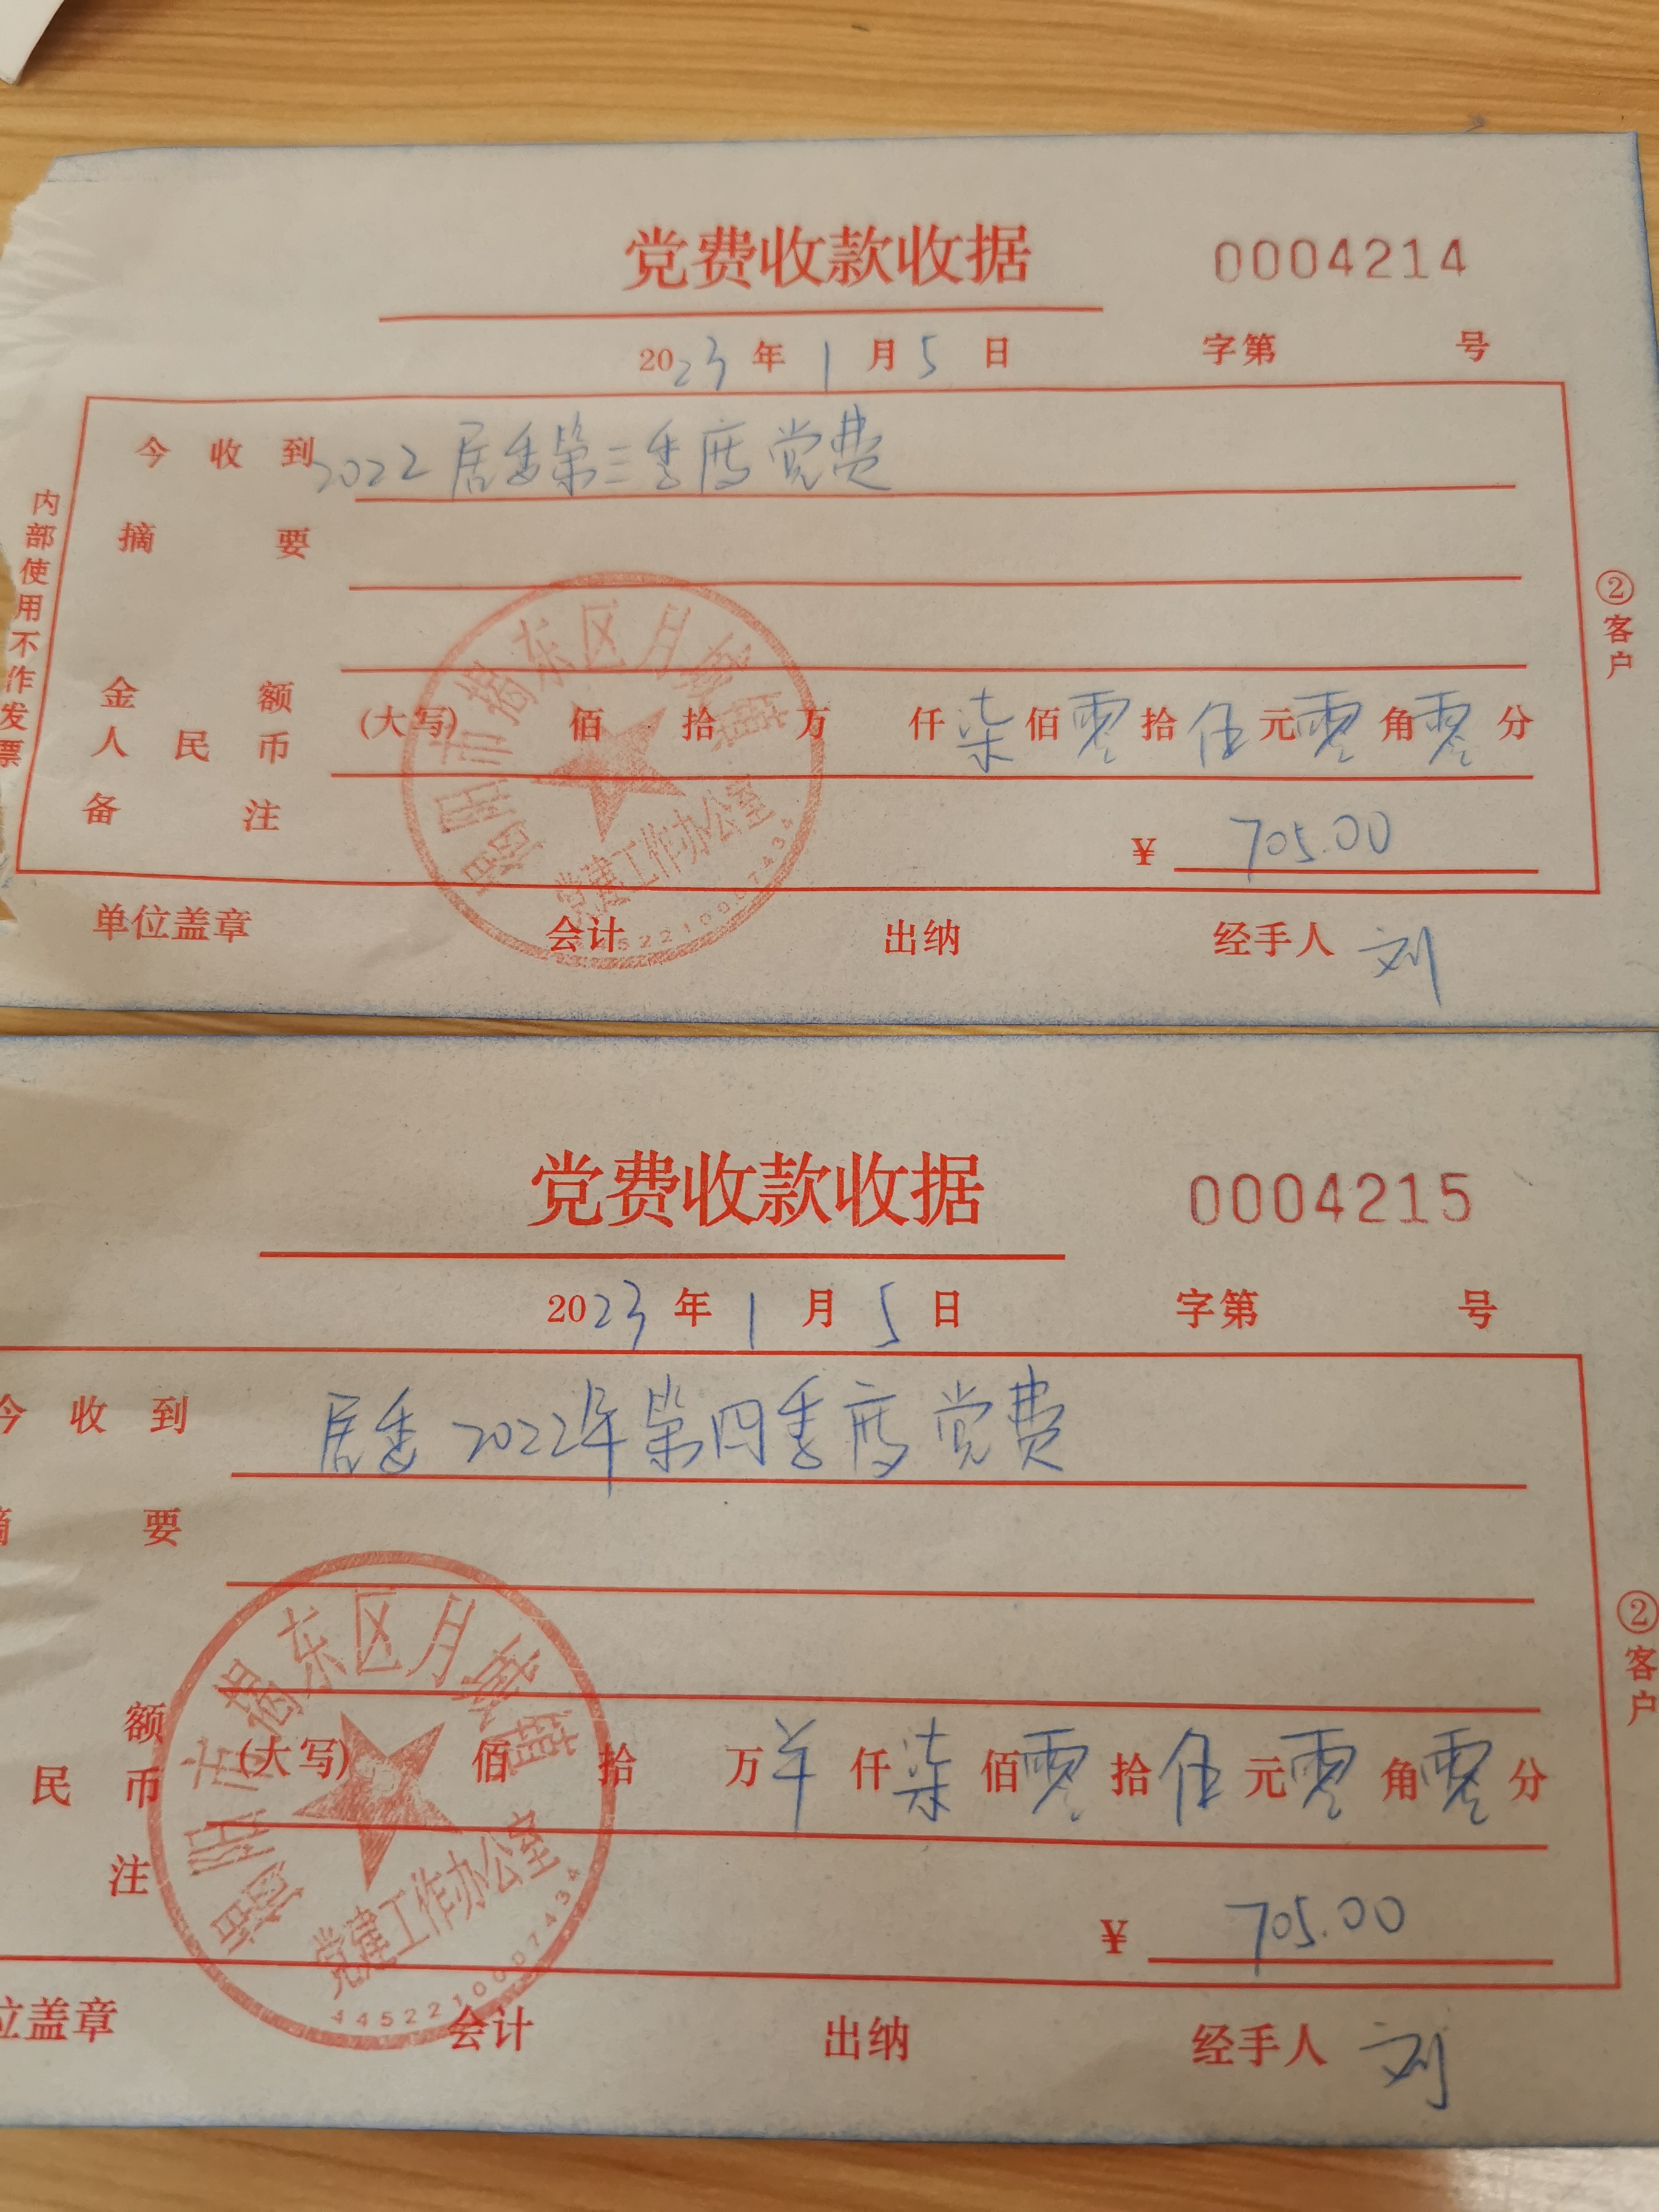 党费收款收据 0004214
2023年1月5日 字第 号
今收到 2022居委第三季度党费
摘要
金额
人民币 (大写) 佰拾万仟柒佰零拾伍元零角零分
备注 ¥ 705.00
单位盖章 会计 出纳 经手人 刘
内部使用不作发票
②客户
揭阳市揭东区月城镇
党建工作办公室
党费收款收据 0004215
2023年1月5日 字第 号
今收到 居委2022年第四季度党费
摘要
额
民币 (大写) 佰拾万 仟柒佰零拾伍元零角零分
注 ¥ 705.00
位盖章 会计 出纳 经手人 刘
②客户
揭阳市揭东区月城镇
党建工作办公室
4452210007434